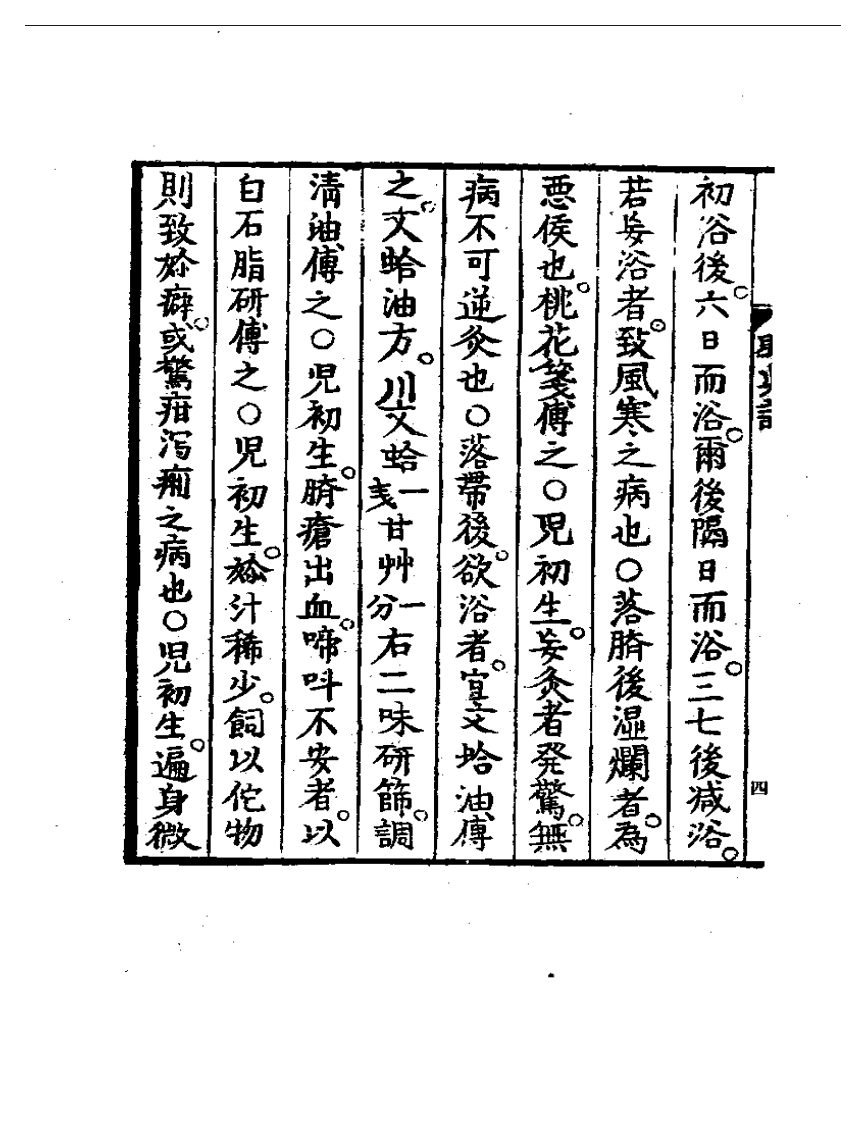 初浴後。六日而浴。爾後隔日而浴。三七後减浴。
若妄浴者。致風寒之病也○落臍後濕爛者。為
悪候也。桃花箋傅之○児初生。妄灸者発驚。無
病不可逆灸也○落帶後。欲浴者。宜文蛤油傅
之。文蛤油方。川文蛤一戔甘艸一分右二味研篩。調
清油傅之○児初生。臍瘡出血。啼呌不安者。以
白石脂研傅之○児初生。汁稀少。飼以佗物
則致癖。或驚疳泻痢之病也○児初生。遍身微
四